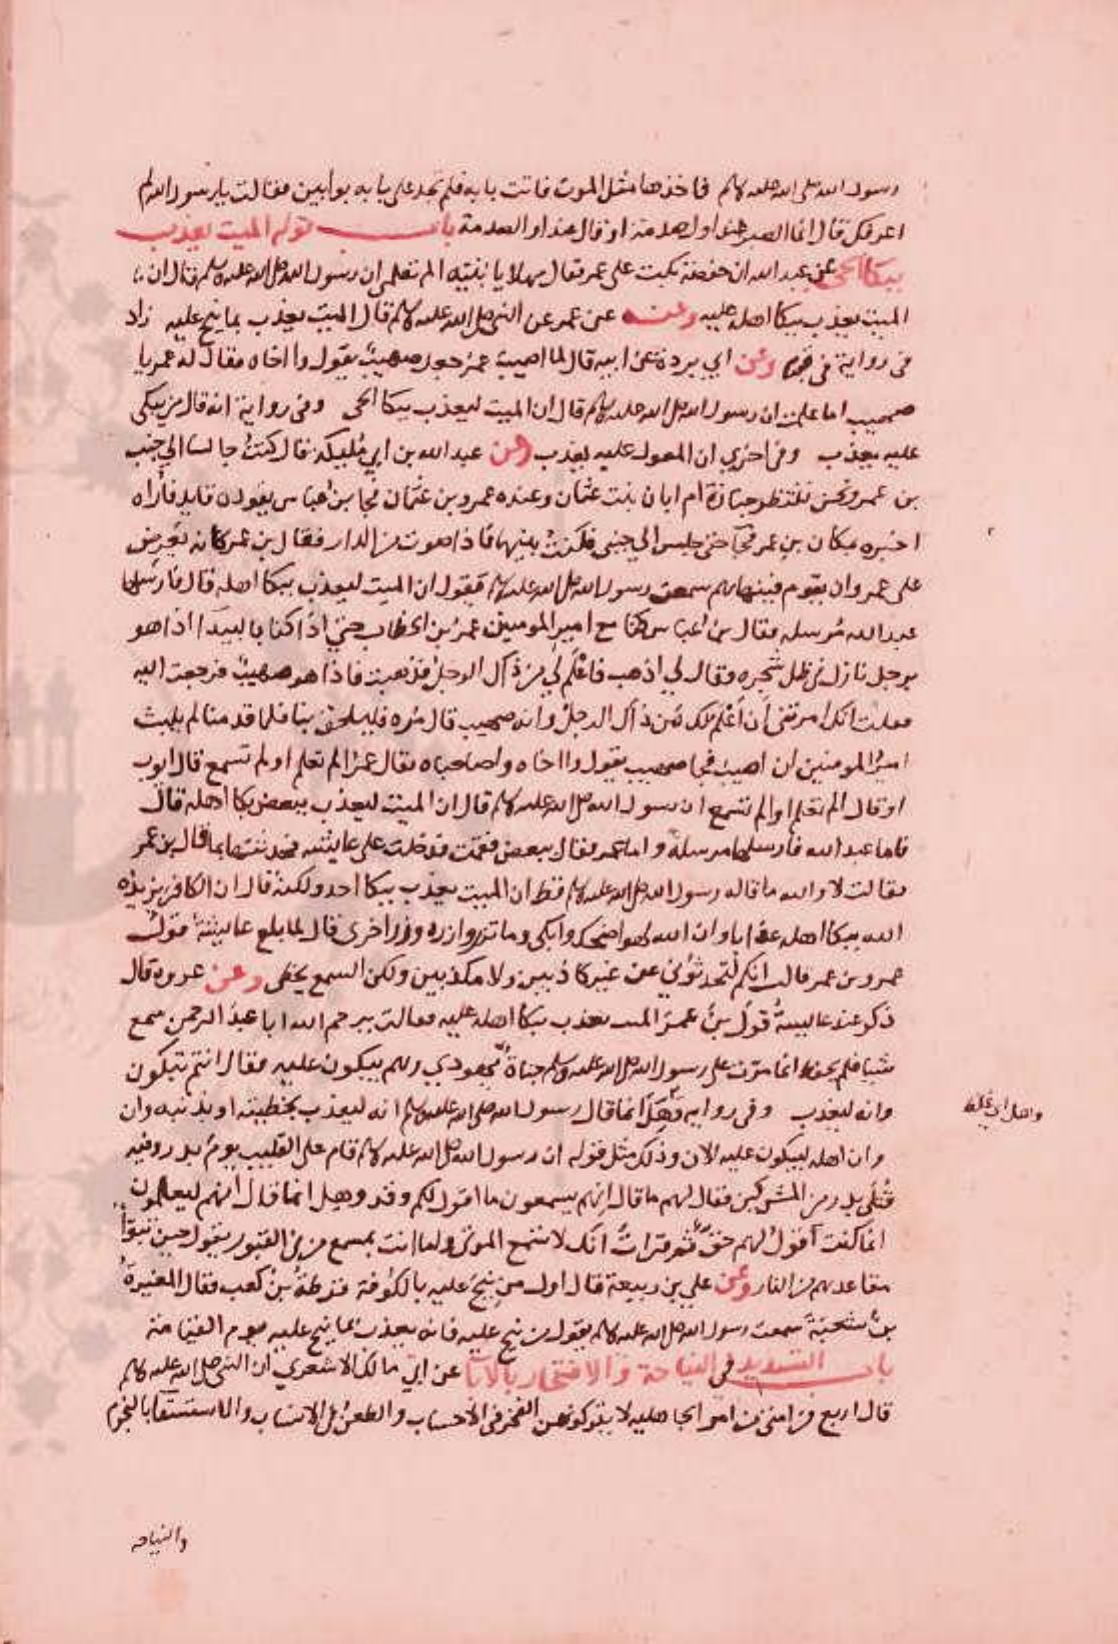 رسول الله صلى الله عليه وسلم فاخذها مثل الموت فاتت بابه فلم تجد على بابه بوابين فقالت يا رسول الله لم
اعرفك قال انما الصبر عند اول صدمة او قال عند اول الصدمة باب قوله الميت يعذب
ببكا الحي عن عبد الله ان حفصة بكت على عمر فقال مهلا يا بنية الم تعلمي ان رسول الله صلى الله عليه وسلم قال ان
الميت يعذب ببكا اهله عليه وعنه عن عمر عن النبي صلى الله عليه وسلم قال الميت يعذب بما نيح عليه زاد
في رواية في قبره وعن ابي بردة عن ابيه قال لما اصيب عمر جعل صهيب يقول وا اخاه فقال له عمر يا
صهيب اما علمت ان رسول الله صلى الله عليه وسلم قال ان الميت ليعذب ببكا الحي وفي رواية انه قال من يبكى
عليه يعذب وفي اخرى ان المعول عليه يعذب وعن عبد الله بن ابي مليكة قال كنت جالسا الى جنب
بن عمر ونحن ننتظر جنازة ام ابان بنت عثمان وعنده عمرو بن عثمان فجا بن عباس يقوده قايد فاراه
اخبره بمكان بن عمر فجآ حتى جلس الى جنبي فكنت بينهما فاذا صوت من الدار فقال بن عمر كانه يعرض
على عمرو ان يقوم فينهاهم سمعت رسول الله صلى الله عليه وسلم يقول ان الميت ليعذب ببكا اهله قال فارسلها
عبد الله مرسله فقال بن عباس كنا مع امير المومنين عمر بن الخطاب حتى اذا كنا بالبيدا اذا هو
برجل نازل في ظل شجره فقال لي اذهب فاعلم لي من ذاك الرجل فذهبت فاذا هو صهيب فرجعت اليه
فقلت انك امرتني ان اعلم لك من ذاك الرجل وانه صهيب قال مره فليلحق بنا فلما قدمنا لم يلبث
امير المومنين ان اصيب فجا صهيب يقول وا اخاه واصاحباه فقال عمر الم تعلم اولم تسمع قال ايوب
او قال الم تعلم او الم تسمع ان رسول الله صلى الله عليه وسلم قال ان الميت ليعذب ببعض بكا اهله قال
فاما عبد الله فارسلها مرسلة واما عمر فقال ببعض فقمت فدخلت على عايشه فحدثتها بما قال بن عمر
فقالت لا والله ما قاله رسول الله صلى الله عليه وسلم قط ان الميت يعذب ببكا احد ولكنه قال ان الكافر يزيده
الله ببكا اهله عذابا وان الله لهو اضحك وابكى وما تزر وازره وزر اخرى قال لما بلغ عايشة قول
عمر وبن عمر قالت انكم لتحدثوني عن غير كاذبين ولا مكذبين ولكن السمع يخطي وعن عروه قال
ذكر عند عايشة قول بن عمر الميت يعذب ببكا اهله عليه فقالت يرحم الله ابا عبد الرحمن سمع
شيا فلم يحفظ انما مرت على رسول الله صلى الله عليه وسلم جنازة يهودي وهم يبكون عليه فقال انتم تبكون
وانه ليعذب وفي رواية وهل انما قال رسول الله صلى الله عليه وسلم انه ليعذب بخطيئته او بذنبه وان
وان اهله ليبكون عليه الان وذلك مثل قوله ان رسول الله صلى الله عليه وسلم قام على القليب يوم بدر وفيه
قتلى بدر من المشركين فقال لهم ما قال انهم يسمعون ما اقول لكم وقد وهل انما قال انهم ليعلمون
انما كنت اقول لهم حق ثم قرات انك لا تسمع الموتى وما انت بمسمع من في القبور يقول حين تبوأ
مقاعدهم من النار وعن علي بن ربيعة قال اول من نيح عليه بالكوفة قرظة بن كعب فقال المغيرة
بن شعبة سمعت رسول الله صلى الله عليه وسلم يقول من نيح عليه فانه يعذب بما نيح عليه يوم القيامة
باب التشديد في النياحة والافتخار بالابا عن ابي مالك الاشعري ان النبي صلى الله عليه وسلم
قال اربع في امتي من امر الجاهليه لا يتركونهن الفخر في الاحساب والطعن في الانساب والاستسقا بالنجوم
والنياحه